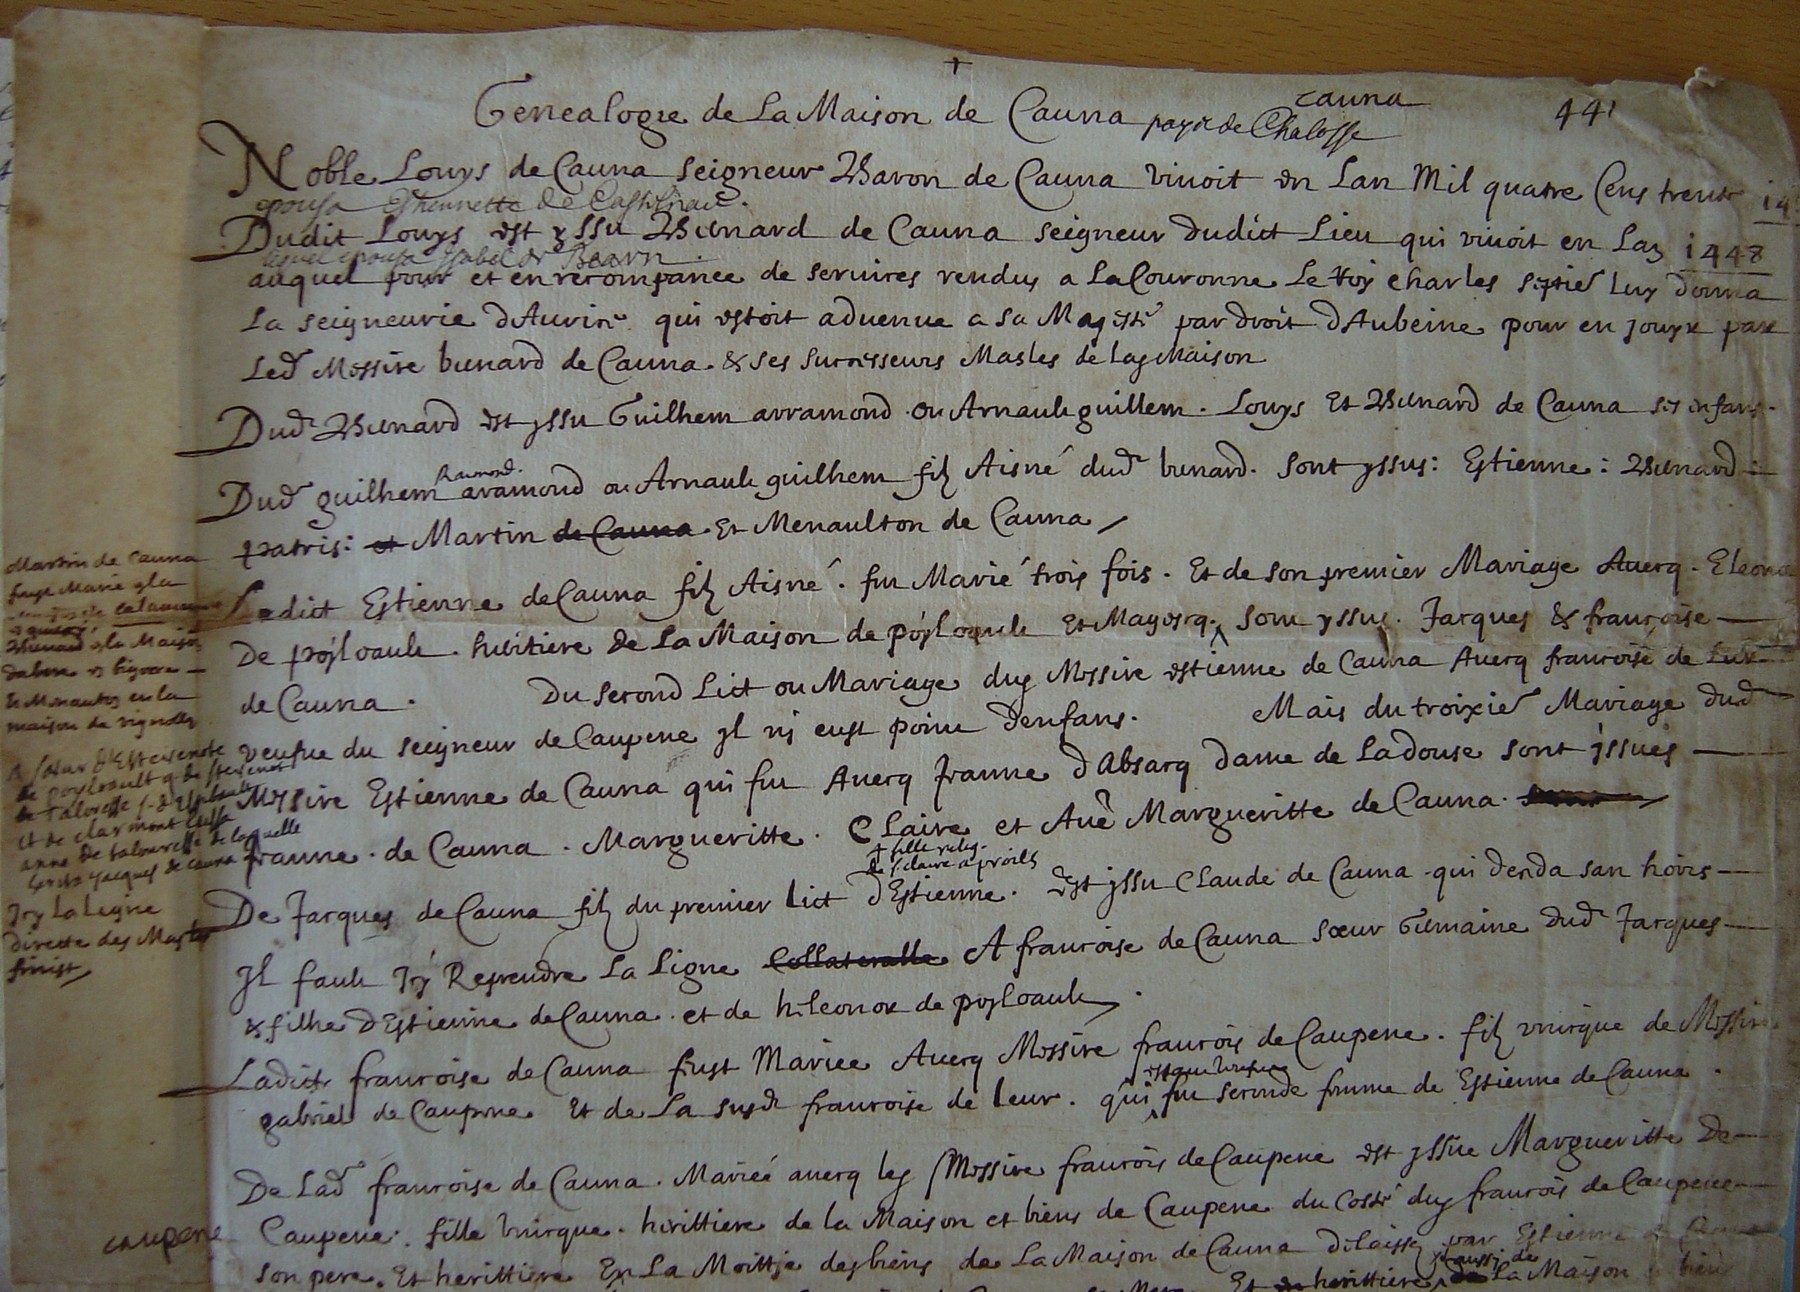 Genealogie de La Maison de Cauna payis de Chalosse
cauna
441
Noble Louys de Cauna seigneur Baron de Cauna vivoit en Lan Mil quatre Cens trente
epousa Esthennette de Castelnau.
Dudit Louys est yssu Bernard de Cauna seigneur dudict Lieu qui vivoit en Lan 1448
lequel epousa ysabel de Bearn
auquel pour et en recompance de services rendus a La Couronne Le Roy Charles septie luy donna
La seigneurie dAurice qui estoit advenue a sa Majesté par droit dAubeine pour en jouyr par
Led Messire bernard de Cauna & ses successeurs Masles de lad Maison
Dud Bernard est yssu Guilhem arramond ou Arnault guillem. Louys Et Bernard de Cauna ses enfans.
Dud guilhem aramond ou Arnault guilhem filz Aisné dud bernard. sont yssus: Estienne: Bernard:
Ramond.
patris: et Martin de Cauna Et Menaulton de Cauna
Ledict Estienne de Cauna filz Aisné. fut Marié trois fois. Et de son premier Mariage Avecq. Eleonor
De poyloault. heritiere de La Maison de poyloault Et Mayoscq. sont yssus. Jacques & françoise
de Cauna. Du second Lict ou Mariage dud Messire estienne de Cauna Avecq francoise de Lur
veufve du seeigneur de Caupene yl ni eust point denfans. Mais du troixie Mariage dud
Messire Estienne de Cauna qui fut Avecq Jeanne dAbsacq dame de Ladouse sont yssues
Jeanne. de Cauna. Margueritte. Claire et Aue Margueritte de Cauna.
+ fille relig.
de s. claire a
De Jacques de Cauna filz du premier Lict dEstienne. est yssu Claude de Cauna qui deceda san hoirs
Il fault Icy Reprendre La Ligne Collateralle A francoise de Cauna sœur Germaine dud Jacques
& filhe dEstienne de Cauna. et de heleonor de poyloault.
Ladicte francoise de Cauna fust Mariee Avecq Messire francois de Caupene. filz unicque de Messire
gabriel de Caupene Et de La susd francoise de Leur. qui fut seconde femme de Estienne de Cauna.
De Lad francoise de Cauna. Mariéé avecq led Messire francois de Caupene est yssue Margueritte De
Caupene. fille unicque. herittiere de la Maison et biens de Caupene du costé dud francois de Caupene
son pere. Et herittiere En La Moittie des biens de La Maison de Cauna delaisses par Estienne de Cauna
Et herittiere aussi de La Maison
Martin de Cauna
fust Marié
Bernard La Maison
Et Menauton en la
maison de vignolles
de poyloault
et de clarmont
anne de talouresse de laquelle
Jacques de Cauna
Icy La Ligne
directe des Masles
finist
caupene